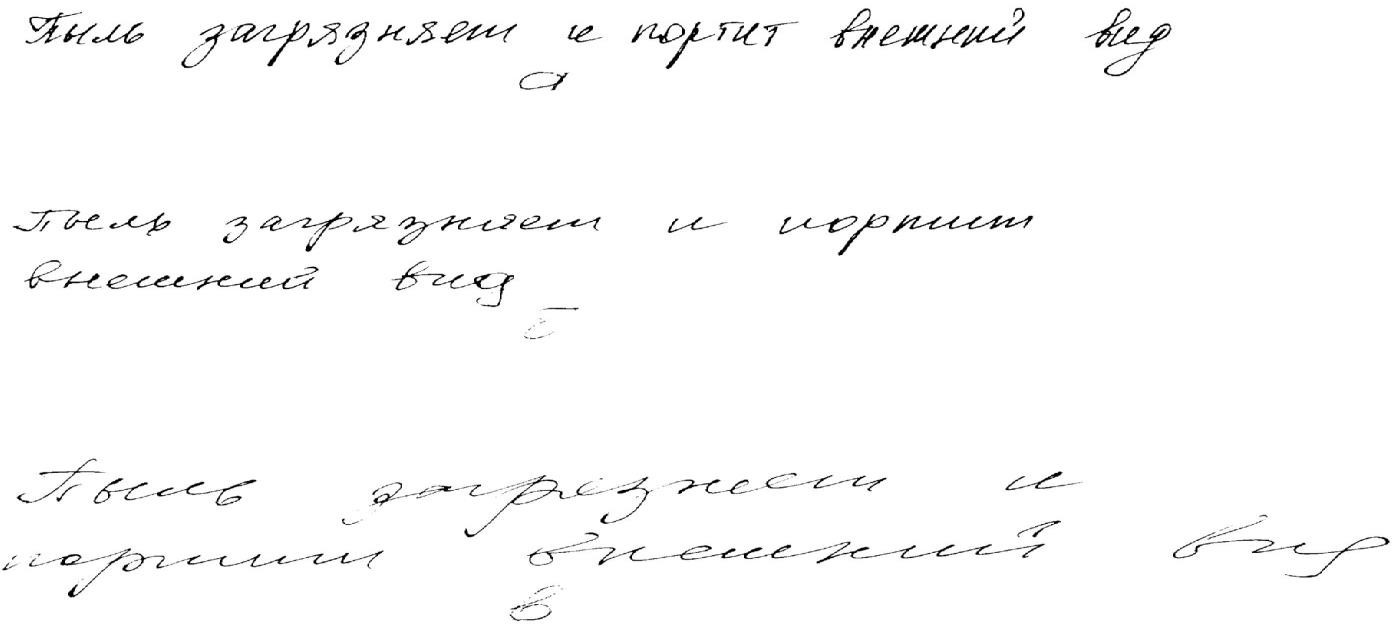 Пыль загрязняет и портит внешний вид
а
Пыль загрязняет и портит
внешний вид
б
Пыль загрязняет и
портит внешний вид
в